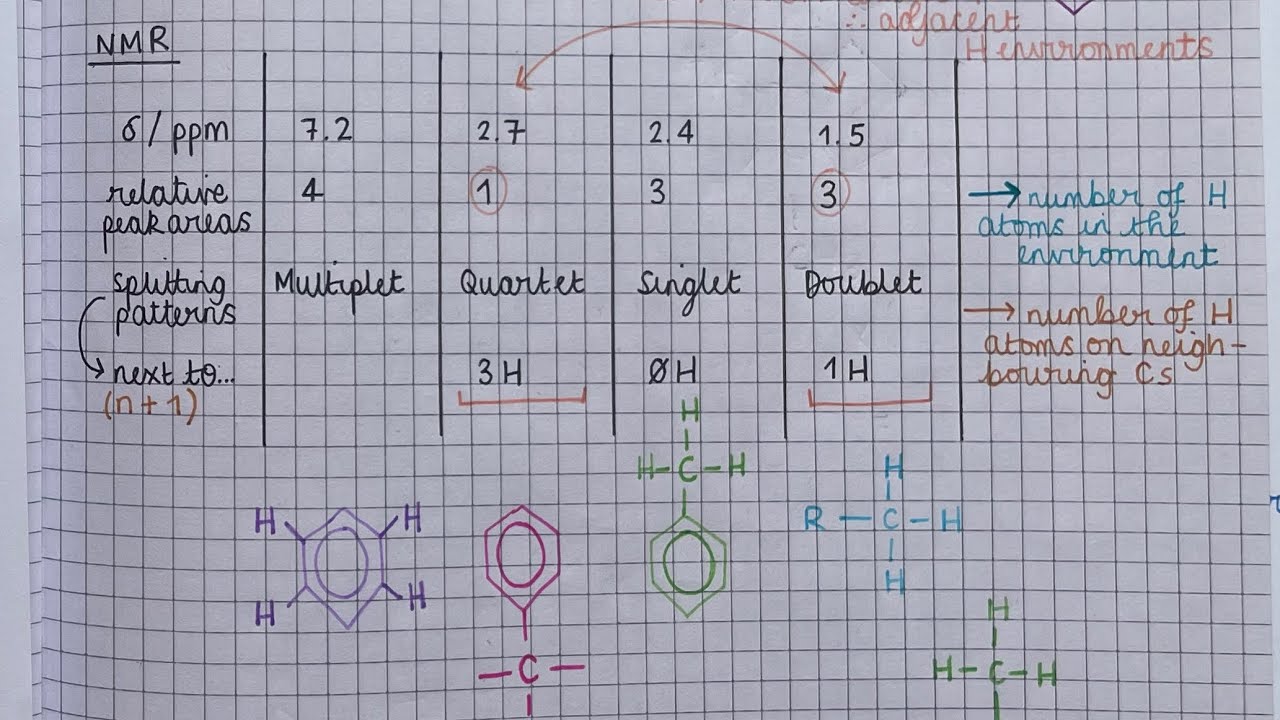 ∴ adjacent
H environments
NMR
δ/ppm 7.2 2.7 2.4 1.5
relative 4 1 3 3 → number of H
peak areas atoms in the
environment
splitting Multiplet Quartet Singlet Doublet
patterns → number of H
atoms on neigh-
next to... 3H 0H 1H bouring Cs
(n+1)
H
H-C-H
H
H H R — C — H
H H H
H
C H-C-H